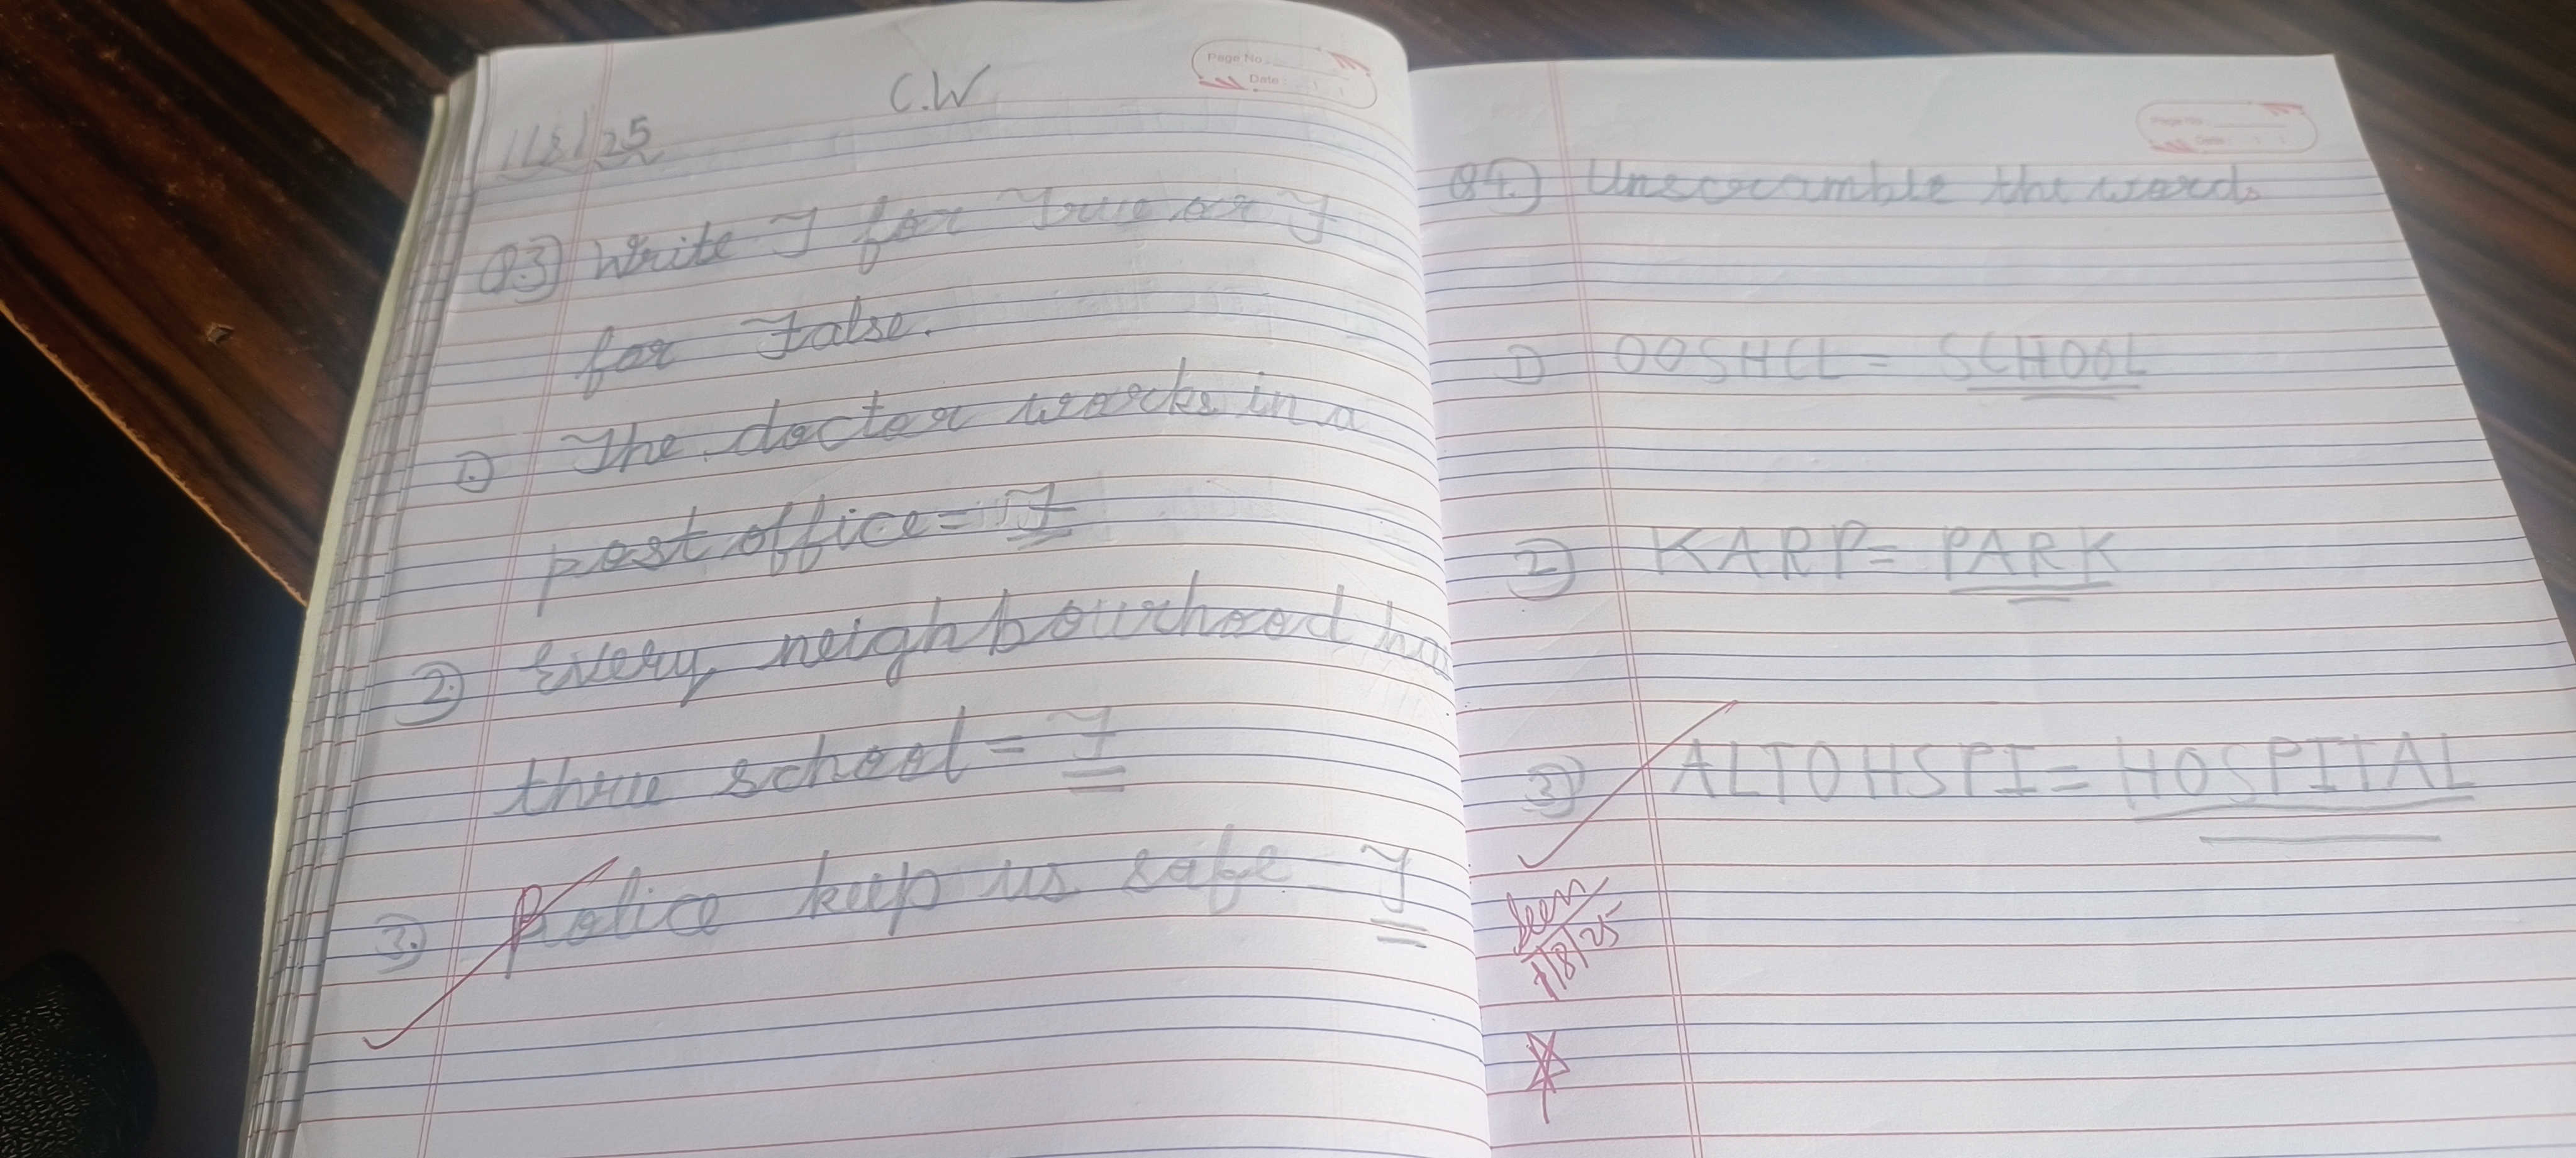 C.W
Page No.
Date :
1/8/25
Q.3) Write T for True or F
for False.
1.) The doctor works in a
post office = F
2.) Every neighbourhood has
three school = F
3.) Police keep us safe = T
Page No.
Date :
Q4.) Unscramble the words
1) OOSHCL = SCHOOL
2) KARP = PARK
3) ALTOHSPI = HOSPITAL
Seen
1/8/25